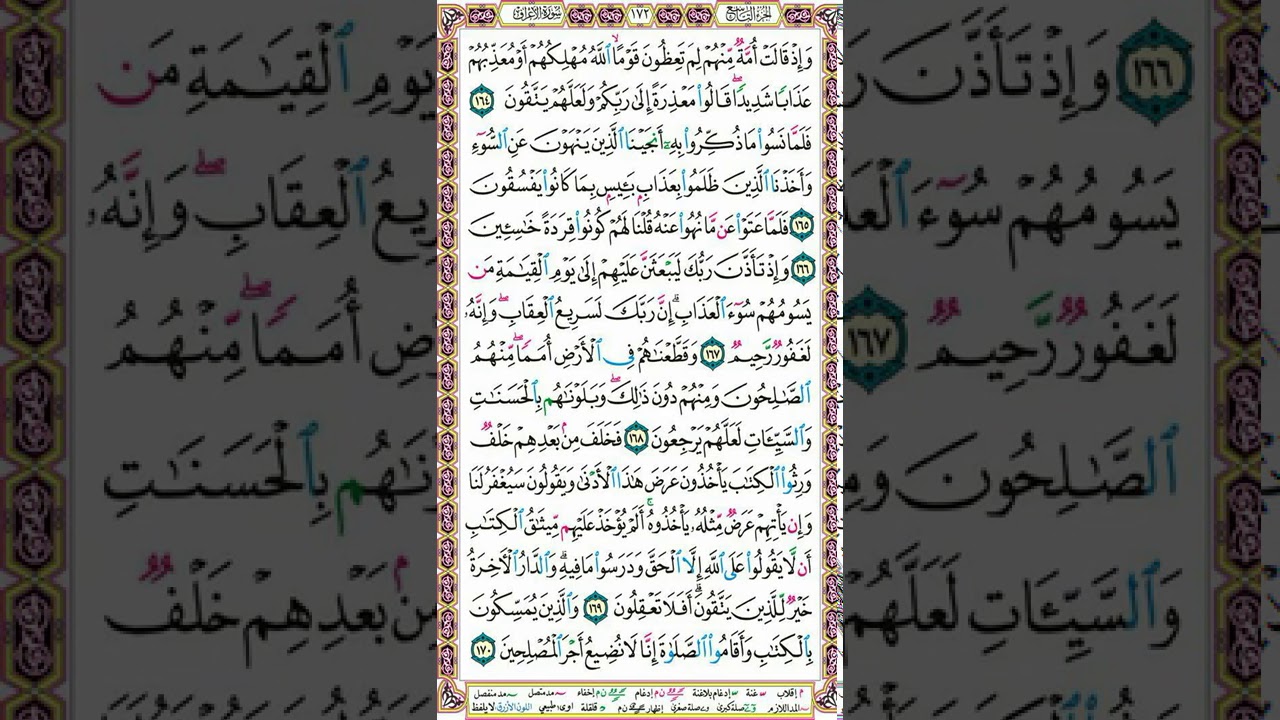 الجزء التاسع ١٧٢ سورة الأعراف
وَإِذْ قَالَتْ أُمَّةٌ مِّنْهُمْ لِمَ تَعِظُونَ قَوْمًا ۙ ٱللَّهُ مُهْلِكُهُمْ أَوْ مُعَذِّبُهُمْ
عَذَابًا شَدِيدًا ۖ قَالُوا۟ مَعْذِرَةً إِلَىٰ رَبِّكُمْ وَلَعَلَّهُمْ يَتَّقُونَ ١٦٤
فَلَمَّا نَسُوا۟ مَا ذُكِّرُوا۟ بِهِۦٓ أَنجَيْنَا ٱلَّذِينَ يَنْهَوْنَ عَنِ ٱلسُّوٓءِ
وَأَخَذْنَا ٱلَّذِينَ ظَلَمُوا۟ بِعَذَابٍۭ بَـِٔيسٍۭ بِمَا كَانُوا۟ يَفْسُقُونَ
١٦٥ فَلَمَّا عَتَوْا۟ عَن مَّا نُهُوا۟ عَنْهُ قُلْنَا لَهُمْ كُونُوا۟ قِرَدَةً خَـٰسِـِٔينَ
١٦٦ وَإِذْ تَأَذَّنَ رَبُّكَ لَيَبْعَثَنَّ عَلَيْهِمْ إِلَىٰ يَوْمِ ٱلْقِيَـٰمَةِ مَن
يَسُومُهُمْ سُوٓءَ ٱلْعَذَابِ ۗ إِنَّ رَبَّكَ لَسَرِيعُ ٱلْعِقَابِ ۖ وَإِنَّهُۥ
لَغَفُورٌ رَّحِيمٌ ١٦٧ وَقَطَّعْنَـٰهُمْ فِى ٱلْأَرْضِ أُمَمًا ۖ مِّنْهُمُ
ٱلصَّـٰلِحُونَ وَمِنْهُمْ دُونَ ذَٰلِكَ ۖ وَبَلَوْنَـٰهُم بِٱلْحَسَنَـٰتِ
وَٱلسَّيِّـَٔاتِ لَعَلَّهُمْ يَرْجِعُونَ ١٦٨ فَخَلَفَ مِنۢ بَعْدِهِمْ خَلْفٌ
وَرِثُوا۟ ٱلْكِتَـٰبَ يَأْخُذُونَ عَرَضَ هَـٰذَا ٱلْأَدْنَىٰ وَيَقُولُونَ سَيُغْفَرُ لَنَا
وَإِن يَأْتِهِمْ عَرَضٌ مِّثْلُهُۥ يَأْخُذُوهُ ۚ أَلَمْ يُؤْخَذْ عَلَيْهِم مِّيثَـٰقُ ٱلْكِتَـٰبِ
أَن لَّا يَقُولُوا۟ عَلَى ٱللَّهِ إِلَّا ٱلْحَقَّ وَدَرَسُوا۟ مَا فِيهِ ۗ وَٱلدَّارُ ٱلْـَٔاخِرَةُ
خَيْرٌ لِّلَّذِينَ يَتَّقُونَ ۗ أَفَلَا تَعْقِلُونَ ١٦٩ وَٱلَّذِينَ يُمَسِّكُونَ
بِٱلْكِتَـٰبِ وَأَقَامُوا۟ ٱلصَّلَوٰةَ إِنَّا لَا نُضِيعُ أَجْرَ ٱلْمُصْلِحِينَ ١٧٠
إقلاب غنة إدغام بلاغنة إدغام إخفاء مد متصل مد منفصل
المد اللازم صلة كبرى صلة صغرى إظهار قلقلة طبيعي اللون الأزرق لا يلفظ